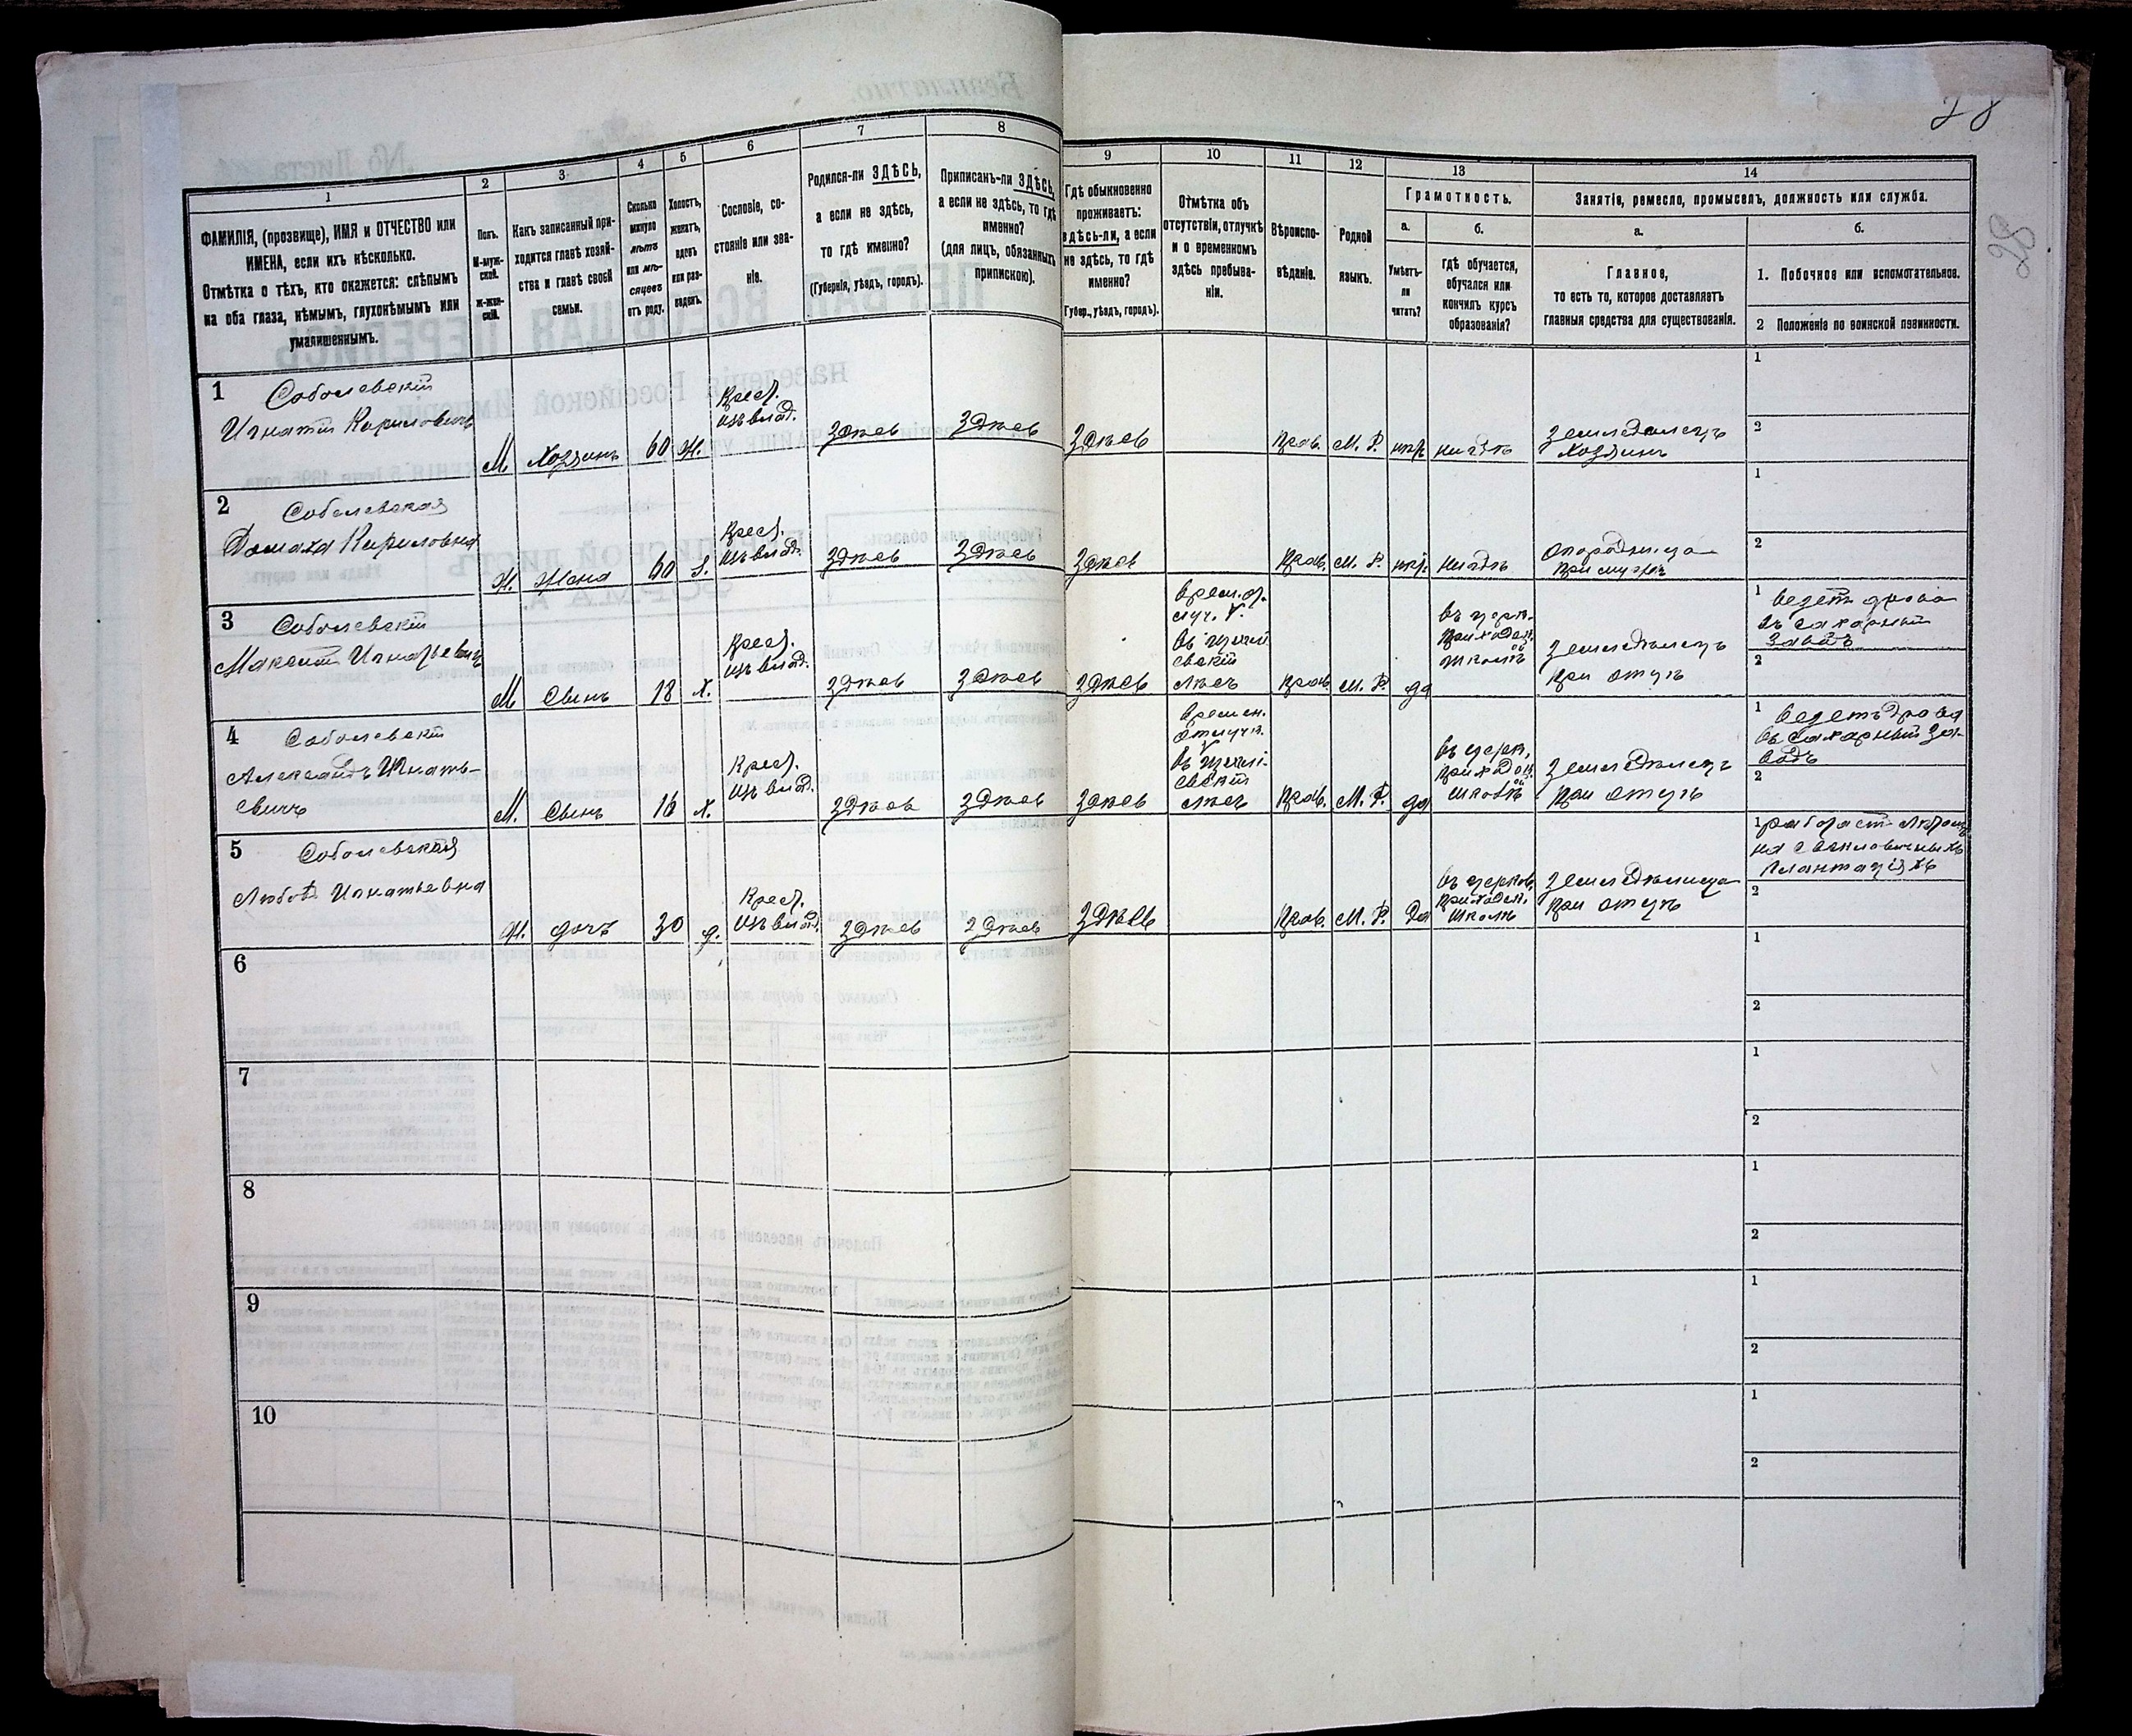 28
28
1
2
3
4
5
6
7
8
9
10
11
12
13
14
ФАМИЛІЯ, (прозвище), ИМЯ и ОТЧЕСТВО или
ИМЕНА, если ихъ нѣсколько.
Отмѣтка о тѣхъ, кто окажется: слѣпымъ
на оба глаза, нѣмымъ, глухонѣмымъ или
умалишеннымъ.
Полъ.
М-муж-
ской.
Ж-жен-
скій.
Какъ записанный при-
ходится главѣ хозяй-
ства и главѣ своей
семьи.
Сколько
минуло
лѣтъ
или мѣ-
сяцевъ
отъ роду.
Холостъ,
женатъ,
вдовъ
или раз-
веденъ.
Сословіе, со-
стояніе или зва-
ніе.
Родился-ли ЗДѢСЬ,
а если не здѣсь,
то гдѣ именно?
(Губернія, уѣздъ, городъ).
Приписанъ-ли ЗДѢСЬ,
а если не здѣсь, то гдѣ
именно?
(для лицъ, обязанныхъ
припискою).
Гдѣ обыкновенно
проживаетъ:
здѣсь-ли, а если
не здѣсь, то гдѣ
именно?
Губер., уѣздъ, городъ).
Отмѣтка объ
отсутствіи, отлучкѣ
и о временномъ
здѣсь пребыва-
ніи.
Вѣроиспо-
вѣданіе.
Родной
языкъ.
Грамотность.
а.
б.
Умѣетъ-
ли
читать?
гдѣ обучается,
обучался или
кончилъ курсъ
образованія?
Занятіе, ремесло, промыселъ, должность или служба.
а.
б.
Главное,
то есть то, которое доставляетъ
главныя средства для существованія.
1. Побочное или вспомогательное.
2 Положеніе по воинской повинности.
1 Соболевскій
Игнатій Кириловичъ
М Хозяинъ 60 ж.
Крест.
изъ влад.
Здѣсь Здѣсь Здѣсь
Прав. М. Р. нѣт нигдѣ
Земледѣлецъ
Хозяинъ
1
2
2 Соболевская
Домаха Кириловна
Ж. Жена 60 з.
Крест.
изъ влад.
Здѣсь Здѣсь Здѣсь
Прав. М. Р. нѣт. нигдѣ
огородница
при мужѣ
1
2
3 Соболевскій
Максимъ Игнатьевичъ
М Сынъ 18 х.
Крест.
изъ влад.
Здѣсь Здѣсь Здѣсь
лѣсъ
Прав. М. Р. да
въ церк.
приходск.
школѣ
Земледѣлецъ
при отцѣ
1 везетъ дрова
въ сахарный
завотъ
2
4 Соболевскій
Александъ Игнать-
евичъ
М. Сынъ 16 х.
Крест.
изъ влад.
Здѣсь Здѣсь Здѣсь
времен.
отлучк.
V
лѣсъ
Прав. М. Р. да
въ церк.
приходск.
школѣ
Земледѣлецъ
при отцѣ
1 везетъ дрова
въ сахарный за-
водъ
2
5 Соболевская
Любовь Игнатьевна
Ж. дочъ 30 д.
Крест.
изъ влад.
Здѣсь Здѣсь Здѣсь
Прав. М. Р. да
въ церков.
приходск.
школѣ
Земледѣлица
при отцѣ
1 работаетъ лѣтомъ
на свекловичныхъ
плантаціяхъ
2
6
1
2
7
1
2
8
1
2
9
1
2
10
1
2